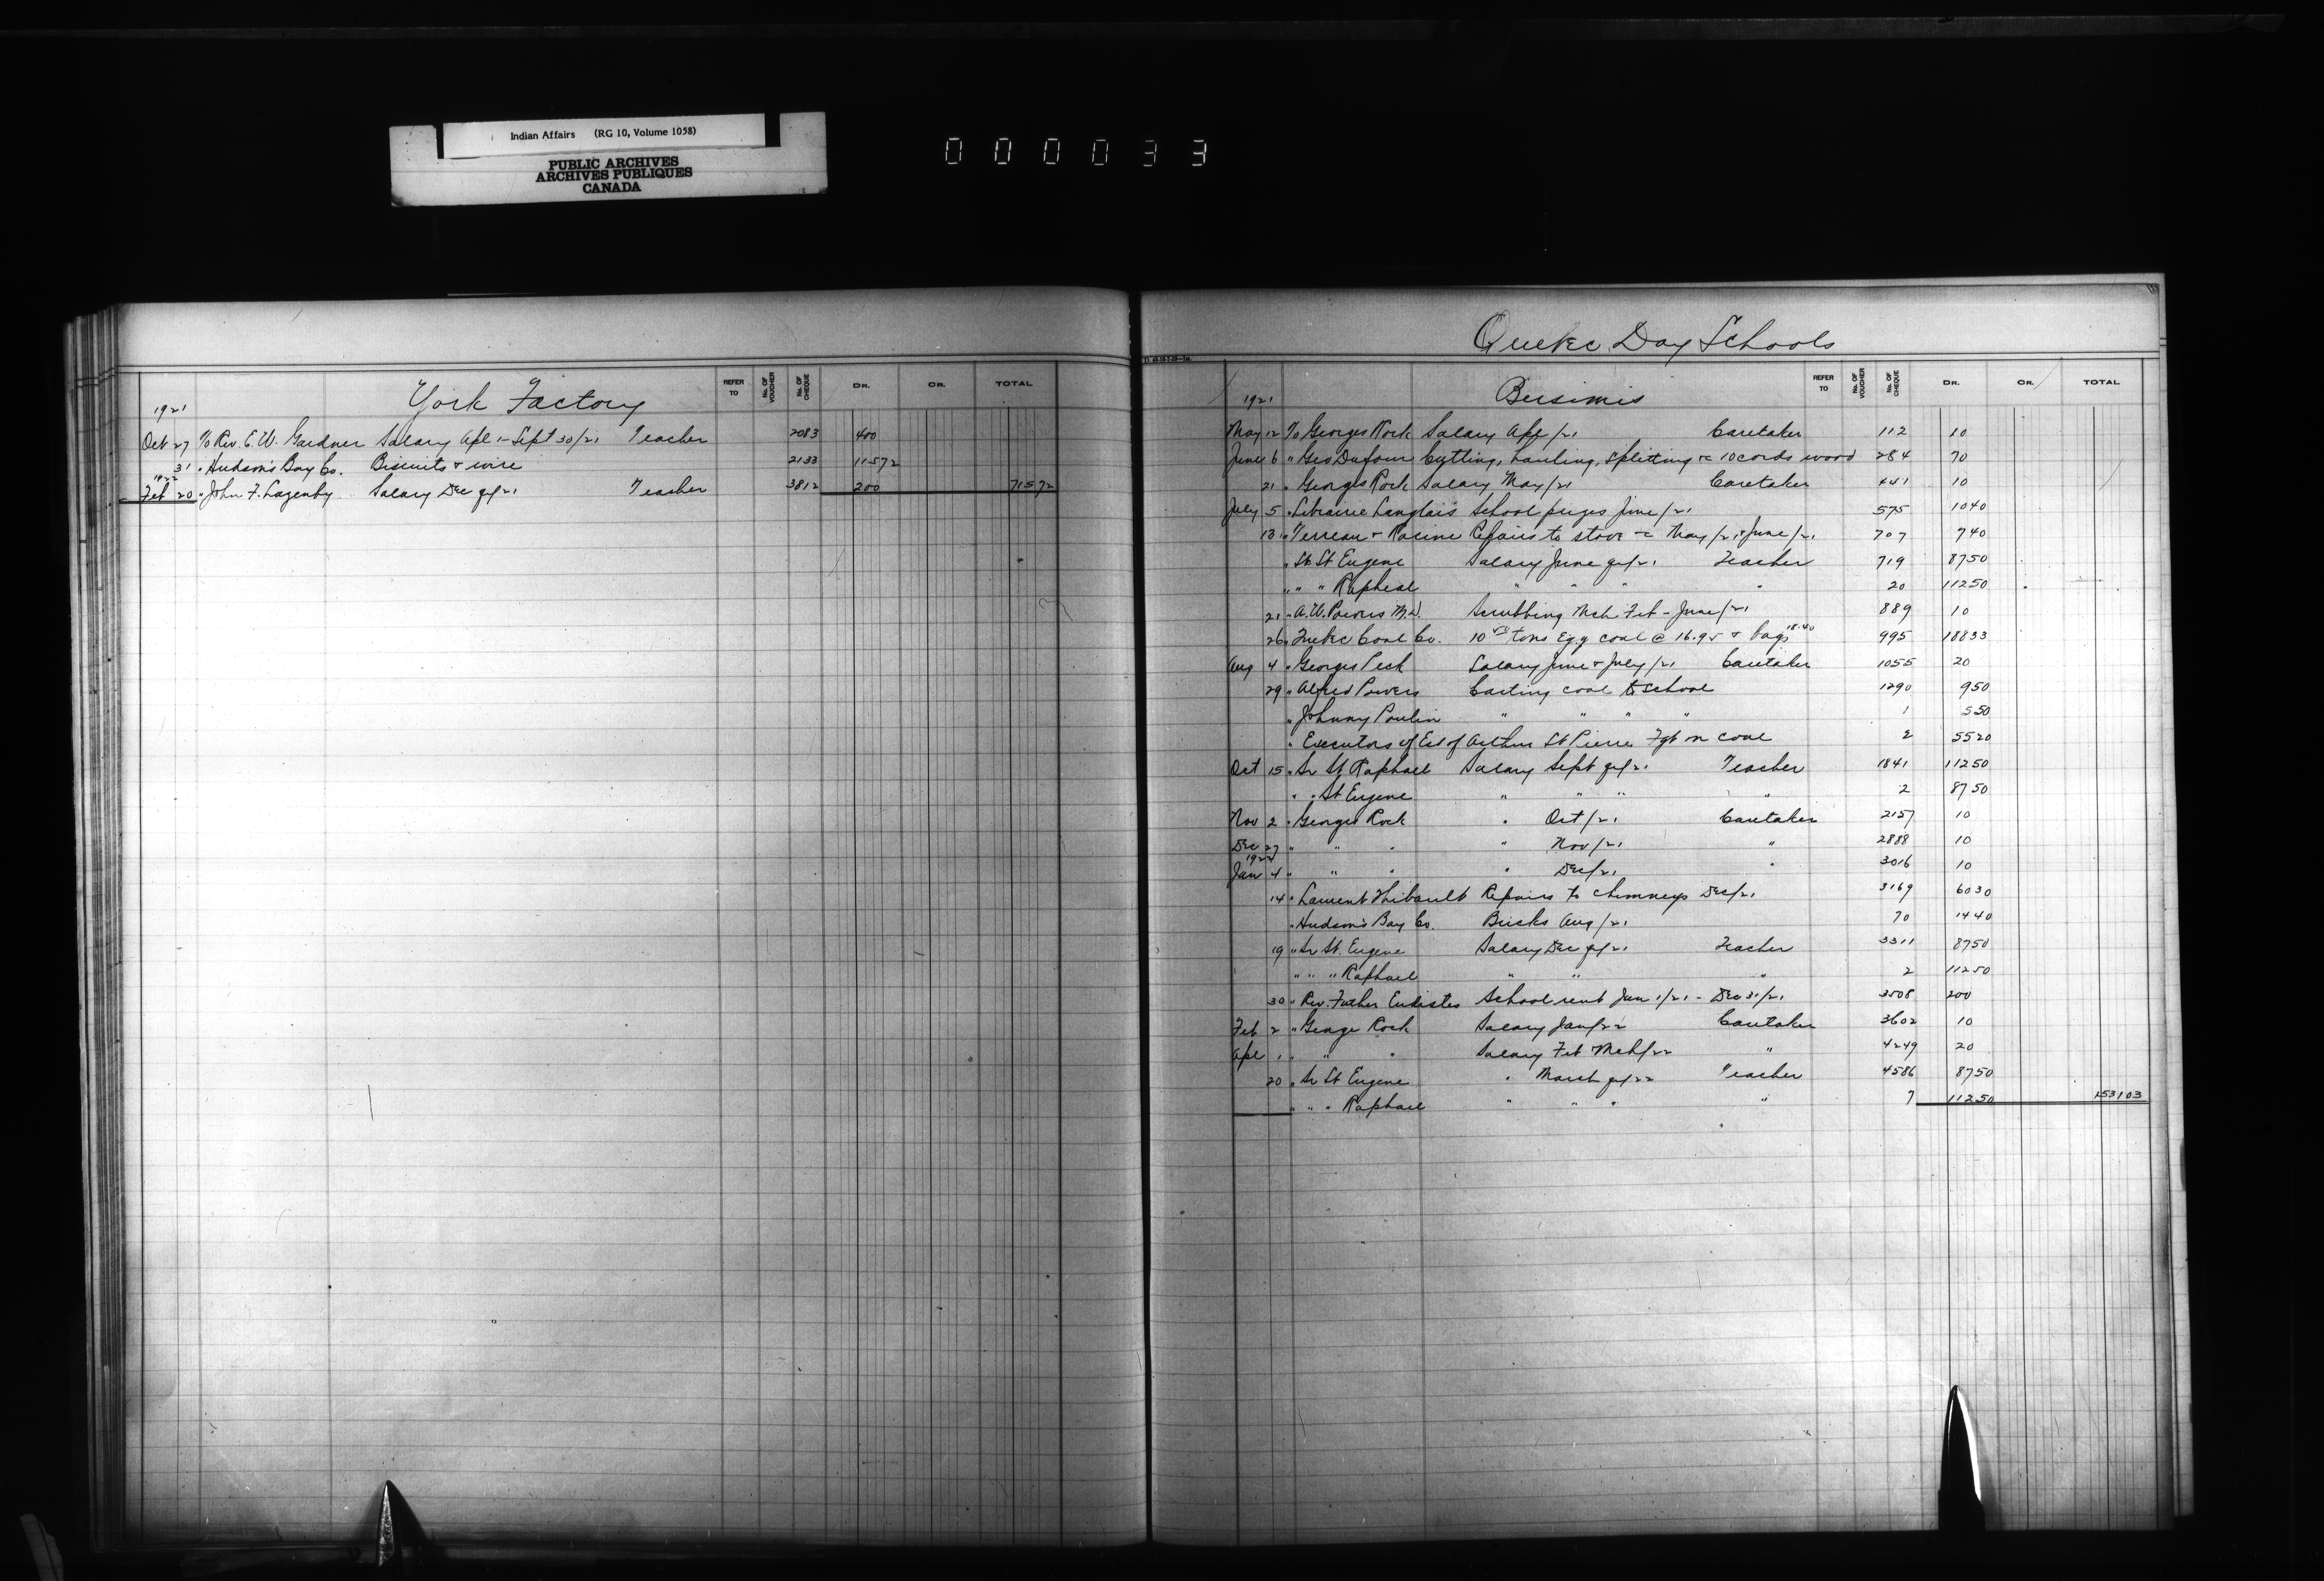 Indian Affairs (RG 10, Volume 1058)
PUBLIC ARCHIVES
ARCHIVES PUBLIQUES
CANADA
000033
York Factory
REFER TO No. OF VOUCHER No. OF CHEQUE DR. CR. TOTAL
1921
Oct 27 To Rev. C. W. Gardner Salary Apl 1 - Sept 30/21 Teacher 2083 400
31 " Hudson's Bay Co. Biscuits & wire 2133 115 72
1922
Feb 20 " John F. Lazenby Salary Dec qr/21 Teacher 3812 200 715 72
Quebec Day Schools
Bersimis
REFER TO No. OF VOUCHER No. OF CHEQUE DR. CR. TOTAL
1921
May 12 To Georges Rock Salary Apl /21 Caretaker 112 10
June 6 " Geo Dufour Cutting, hauling, splitting &c 10 cords wood 284 70
21 " Georges Rock Salary May/21 Caretaker 441 10
July 5 " Librairie Langlais School prizes June/21 575 10 40
13 " Terreau & Racine Repairs to stove &c May/21 & June/21 707 7 40
" St St Eugene Salary June qr/21 Teacher 719 87 50
" " " Rapheal " " " " 20 112 50
21 " A. W. Powers M.D. Scrubbing Mch Feb - June/21 889 10
26 " Quebec Coal Co. 10 tons Egg coal @ 16.95 & bags 18.40 995 188 33
Aug 4 " Georges Rock Salary June & July/21 Caretaker 1055 20
29 " Alfred Powers Carting coal to school 1290 9 50
" Johnny Poulin " " " " 1 5 50
" Executors of Est of Arthur St Pierre Fgt on coal 2 55 20
Oct 15 " Sr St Raphael Salary Sept qr/21 Teacher 1841 112 50
" " St Eugene " " " " 2 87 50
Nov 2 " Georges Rock " Oct/21 Caretaker 2157 10
Dec 27 " " " " Nov/21 " 2888 10
1922
Jan 4 " " " " Dec/21 " 3016 10
14 " Laurent Thibault Repairs to chimneys Dec/21 3169 60 30
" Hudson's Bay Co. Bricks Aug/21 70 14 40
19 " Sr St. Eugene Salary Dec qr/21 Teacher 3311 87 50
" " " Raphael " " " 2 112 50
30 " Rev. Father Eudistes School rent Jan 1/21 - Dec 31/21 3508 200
Feb 2 " George Rock Salary Jan/22 Caretaker 3602 10
Apl 1 " " " Salary Feb & Mch/22 " 4249 20
20 " Sr St Eugene " March qr/22 Teacher 4586 87 50
" " " Raphael " " " " 7 112 50 1531 03